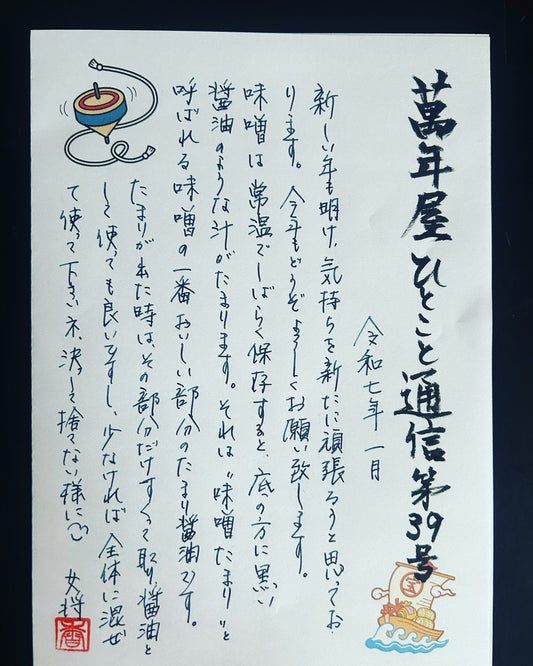 萬年屋ひとこと通信第39号
令和七年一月
新しい年も明け、気持ちを新たに頑張ろうと思ってお
ります。今年もどうぞよろしくお願い致します。
味噌は常温でしばらく保存すると、底の方に黒い
醤油のような汁がたまります。それは"味噌たまり"と
呼ばれる味噌の一番おいしい部分のたまり醤油です。
たまりが出た時は、その部分だけすくって取り、醤油と
して使っても良いですし、少なければ全体に混ぜ
て使って下さいネ、決して捨てない様に
女将
香
宝